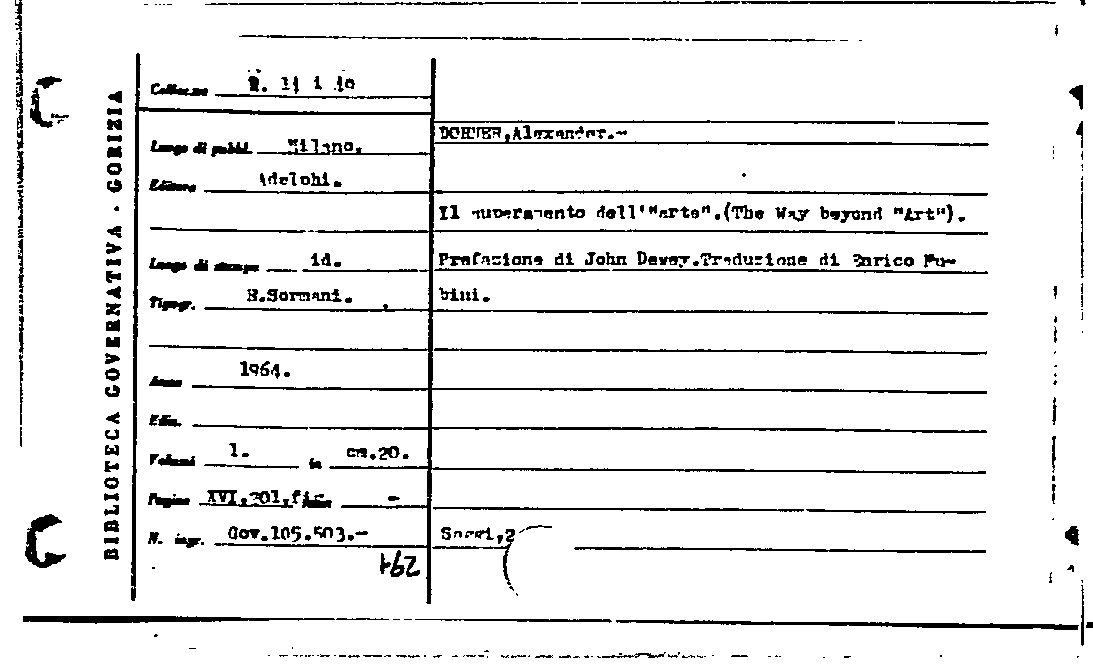 BIBLIOTECA GOVERNATIVA - GORIZIA
Collocaz.
Luogo di pubbl. Milano.
Editore Adelphi.
Luogo di stampa id.
Tipogr. R.Sormani.
Anno 1964.
Ediz.
Volumi 1. in cm.20.
Pagine XVI,201,fig. -
N. ingr. Gov.105.503.-
291
DORNER,Alexander.-
Il superamento dell'"arte".(The Way beyond "Art").
Prefazione di John Dewey.Traduzione di Enrico Fu-
bini.
Saggi,2